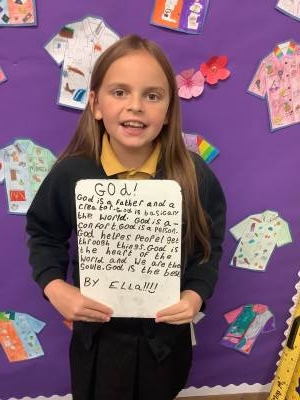 GOd!
God is a father and a
creator. God is basicaly
the world. God is a-
comfort. God is a person.
God helpes peopel get
through things. God is
the heart of the
world and we are the
soule. God is the best
BY ELLa!!!!